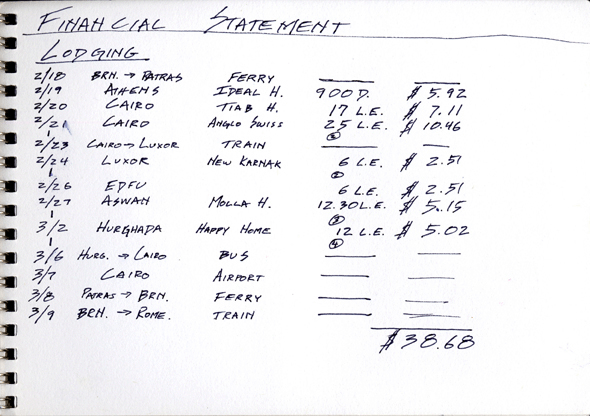 FINANCIAL STATEMENT
LODGING
2/18 BRN. → PATRAS FERRY
2/19 ATHENS IDEAL H. 900 D. $ 5.92
2/20 CAIRO TIAB H. 17 L.E. $ 7.11
2/21 CAIRO ANGLO SWISS 25 L.E. $ 10.46
2/23 CAIRO → LUXOR TRAIN
2/24 LUXOR NEW KARNAK 6 L.E. $ 2.51
2/26 EDFU 6 L.E. $ 2.51
2/27 ASWAN MOLLA H. 12.30 L.E. $ 5.15
3/2 HURGHADA HAPPY HOME 12 L.E. $ 5.02
3/6 HURG. → CAIRO BUS
3/7 CAIRO AIRPORT
3/8 PATRAS → BRN. FERRY
3/9 BRN. → ROME. TRAIN
$ 38.68